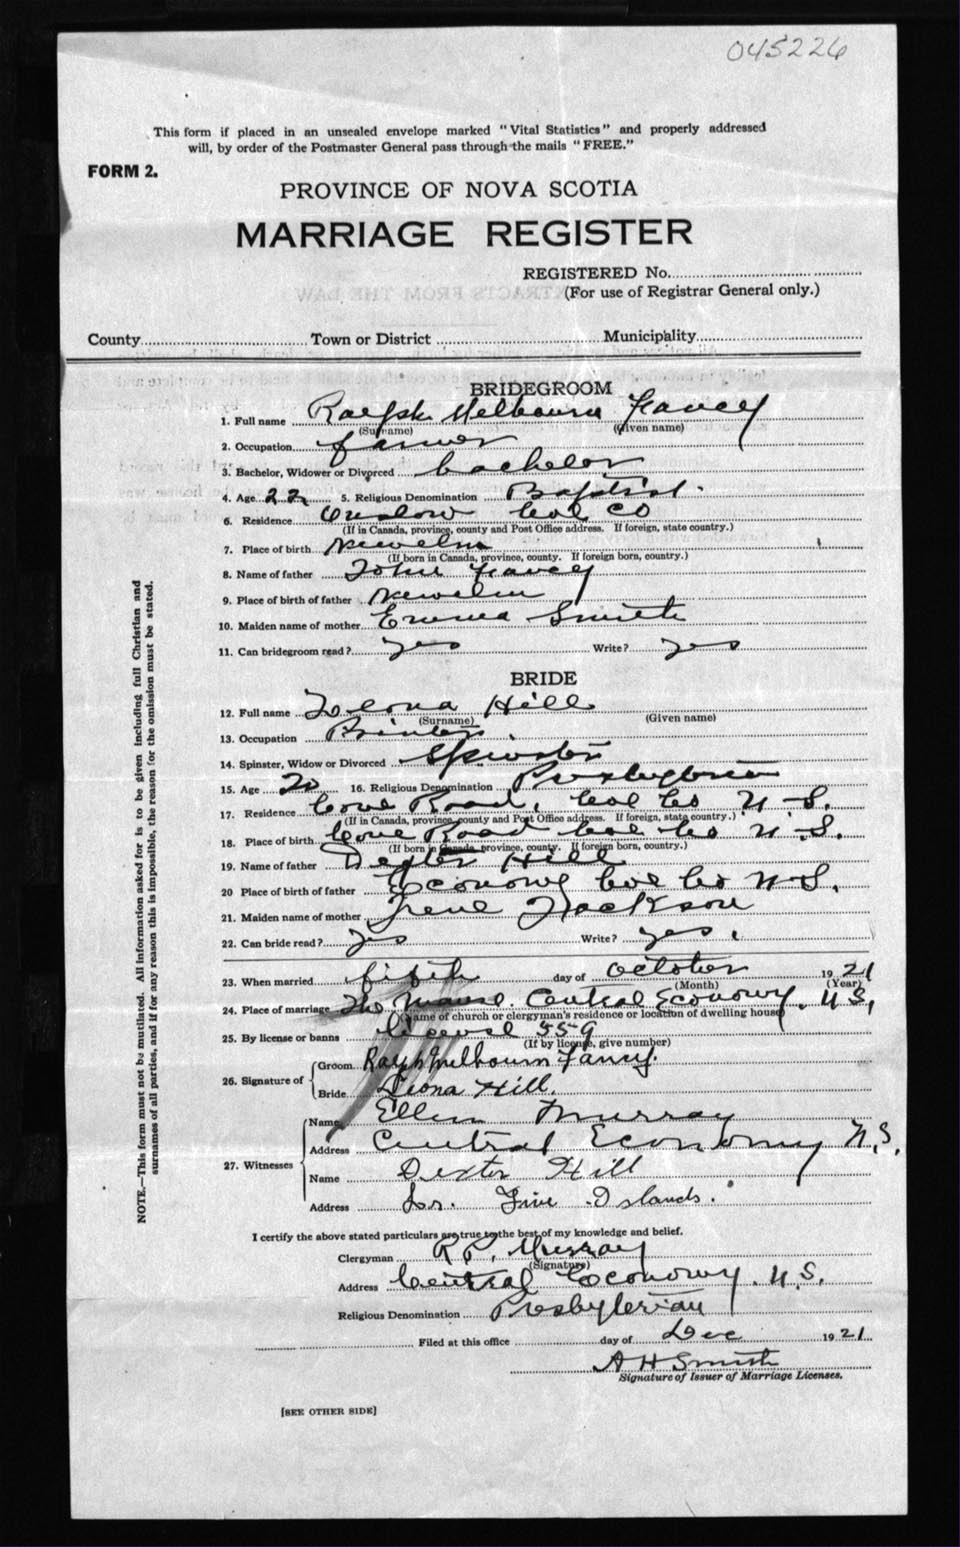 045226
This form if placed in an unsealed envelope marked "Vital Statistics" and properly addressed
will, by order of the Postmaster General pass through the mails "FREE."
FORM 2.
PROVINCE OF NOVA SCOTIA
MARRIAGE REGISTER
REGISTERED No.
(For use of Registrar General only.)
County Town or District Municipality
BRIDEGROOM
1. Full name Ralph Melbourn Fancey
(Surname) (Given name)
2. Occupation farmer
3. Bachelor, Widower or Divorced bachelor
4. Age 22 5. Religious Denomination Baptist
6. Residence Onslow Col Co
(If in Canada, province, county and Post Office address. If foreign, state country.)
7. Place of birth Newelm
(If born in Canada, province, county. If foreign born, country.)
8. Name of father John Fancey
9. Place of birth of father Newelm
10. Maiden name of mother Emma Smith
11. Can bridegroom read? yes Write? yes
BRIDE
12. Full name Leona Hill
(Surname) (Given name)
13. Occupation
14. Spinster, Widow or Divorced Spinster
15. Age 20 16. Religious Denomination Presbyterian
17. Residence Cove Road, Col Co N.S.
(If in Canada, province, county and Post Office address. If foreign, state country.)
18. Place of birth Cove Road Col Co N.S.
(If born in Canada, province, county. If foreign born, country.)
19. Name of father Dexter Hill
20 Place of birth of father Economy Col Co N.S.
21. Maiden name of mother Irene Jackson
22. Can bride read? yes Write? yes
23. When married fifth day of October 1921
(Month) (Year)
24. Place of marriage The Manse. Central Economy. N.S.
(Name of church or clergyman's residence or location of dwelling house)
25. By license or banns License 559
(If by license, give number)
26. Signature of Groom Ralph Melbourn Fancy.
Bride Leona Hill.
27. Witnesses Name Ellen Murray
Address Central Economy N.S.
Name Dexter Hill
Address Lr. Five Islands.
I certify the above stated particulars are true to the best of my knowledge and belief.
Clergyman R.P. Murray
(Signature)
Address Central Economy. N.S.
Religious Denomination Presbyterian
Filed at this office day of Dec 1921
A H Smith
Signature of Issuer of Marriage Licenses.
[SEE OTHER SIDE]
NOTE.—This form must not be mutilated. All information asked for is to be given including full Christian and
surnames of all parties, and if for any reason this is impossible, the reason for the omission must be stated.